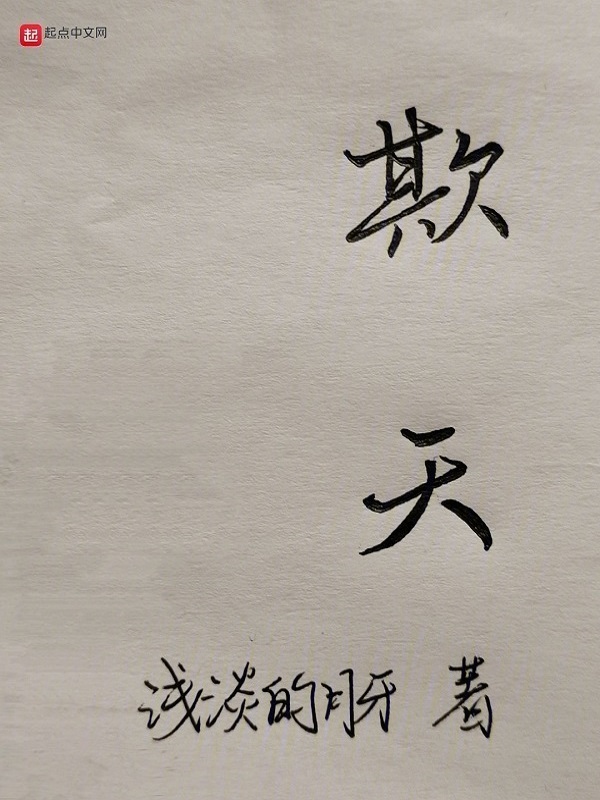 起 起点中文网
欺
天
浅淡的月牙 著